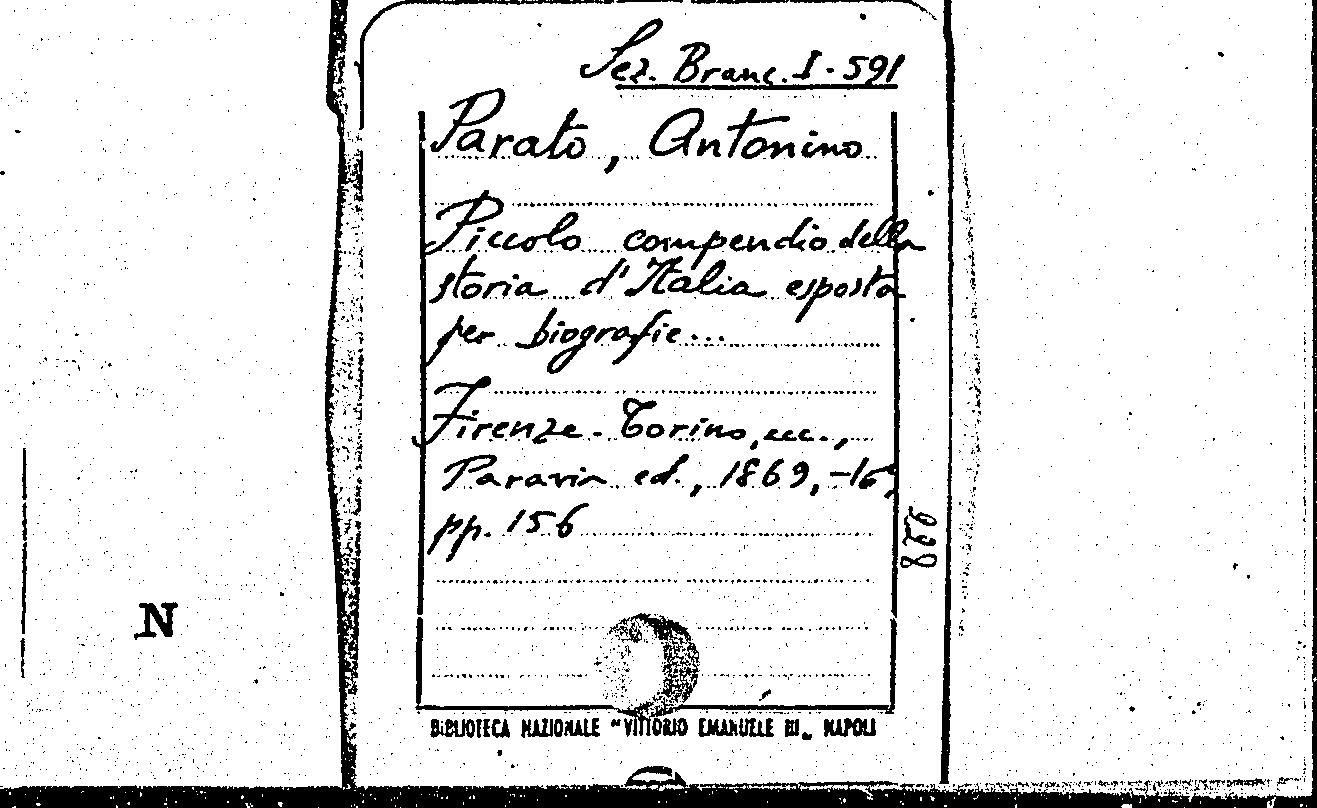 Sez. Branc. I - 591
Parato, Antonino
Piccolo compendio della
storia d'Italia esposta
per biografie...
Firenze - Torino, ecc.,
Paravia ed., 1869, -16°,
pp. 156
N
BIBLIOTECA NAZIONALE "VITTORIO EMANUELE III„ NAPOLI